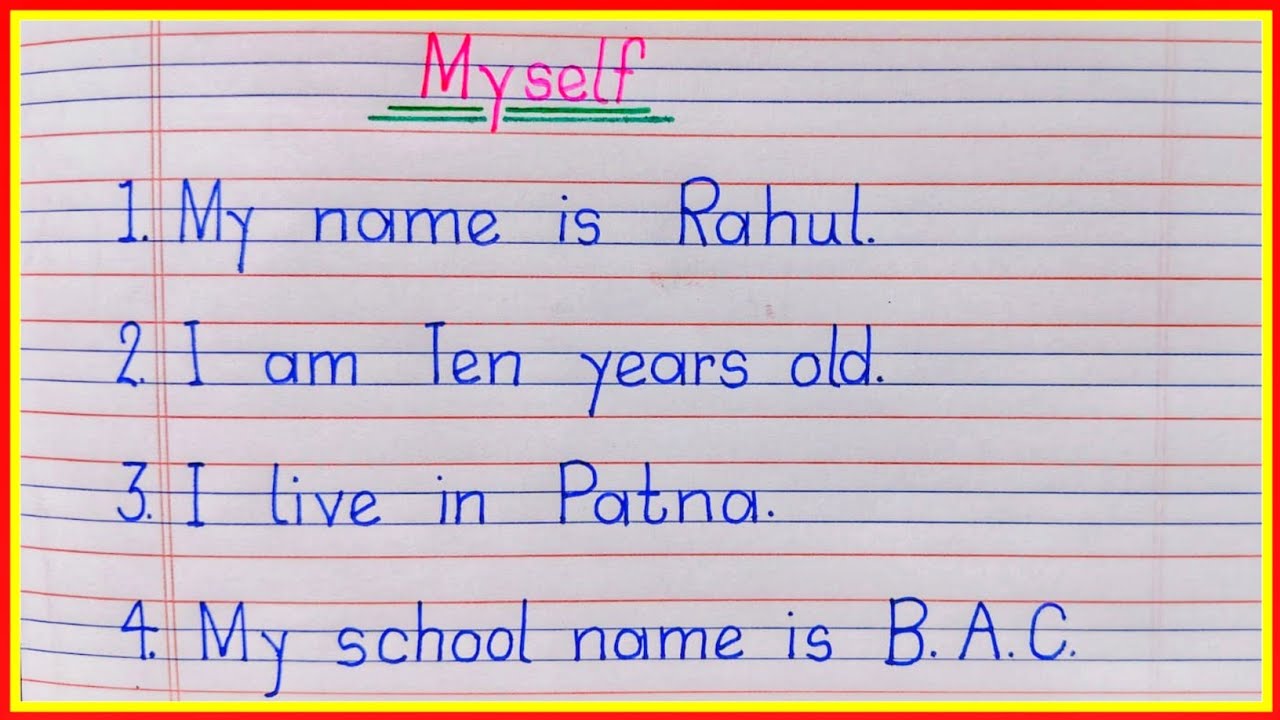 Myself
1. My name is Rahul.
2. I am Ten years old.
3. I live in Patna.
4. My school name is B.A.C.